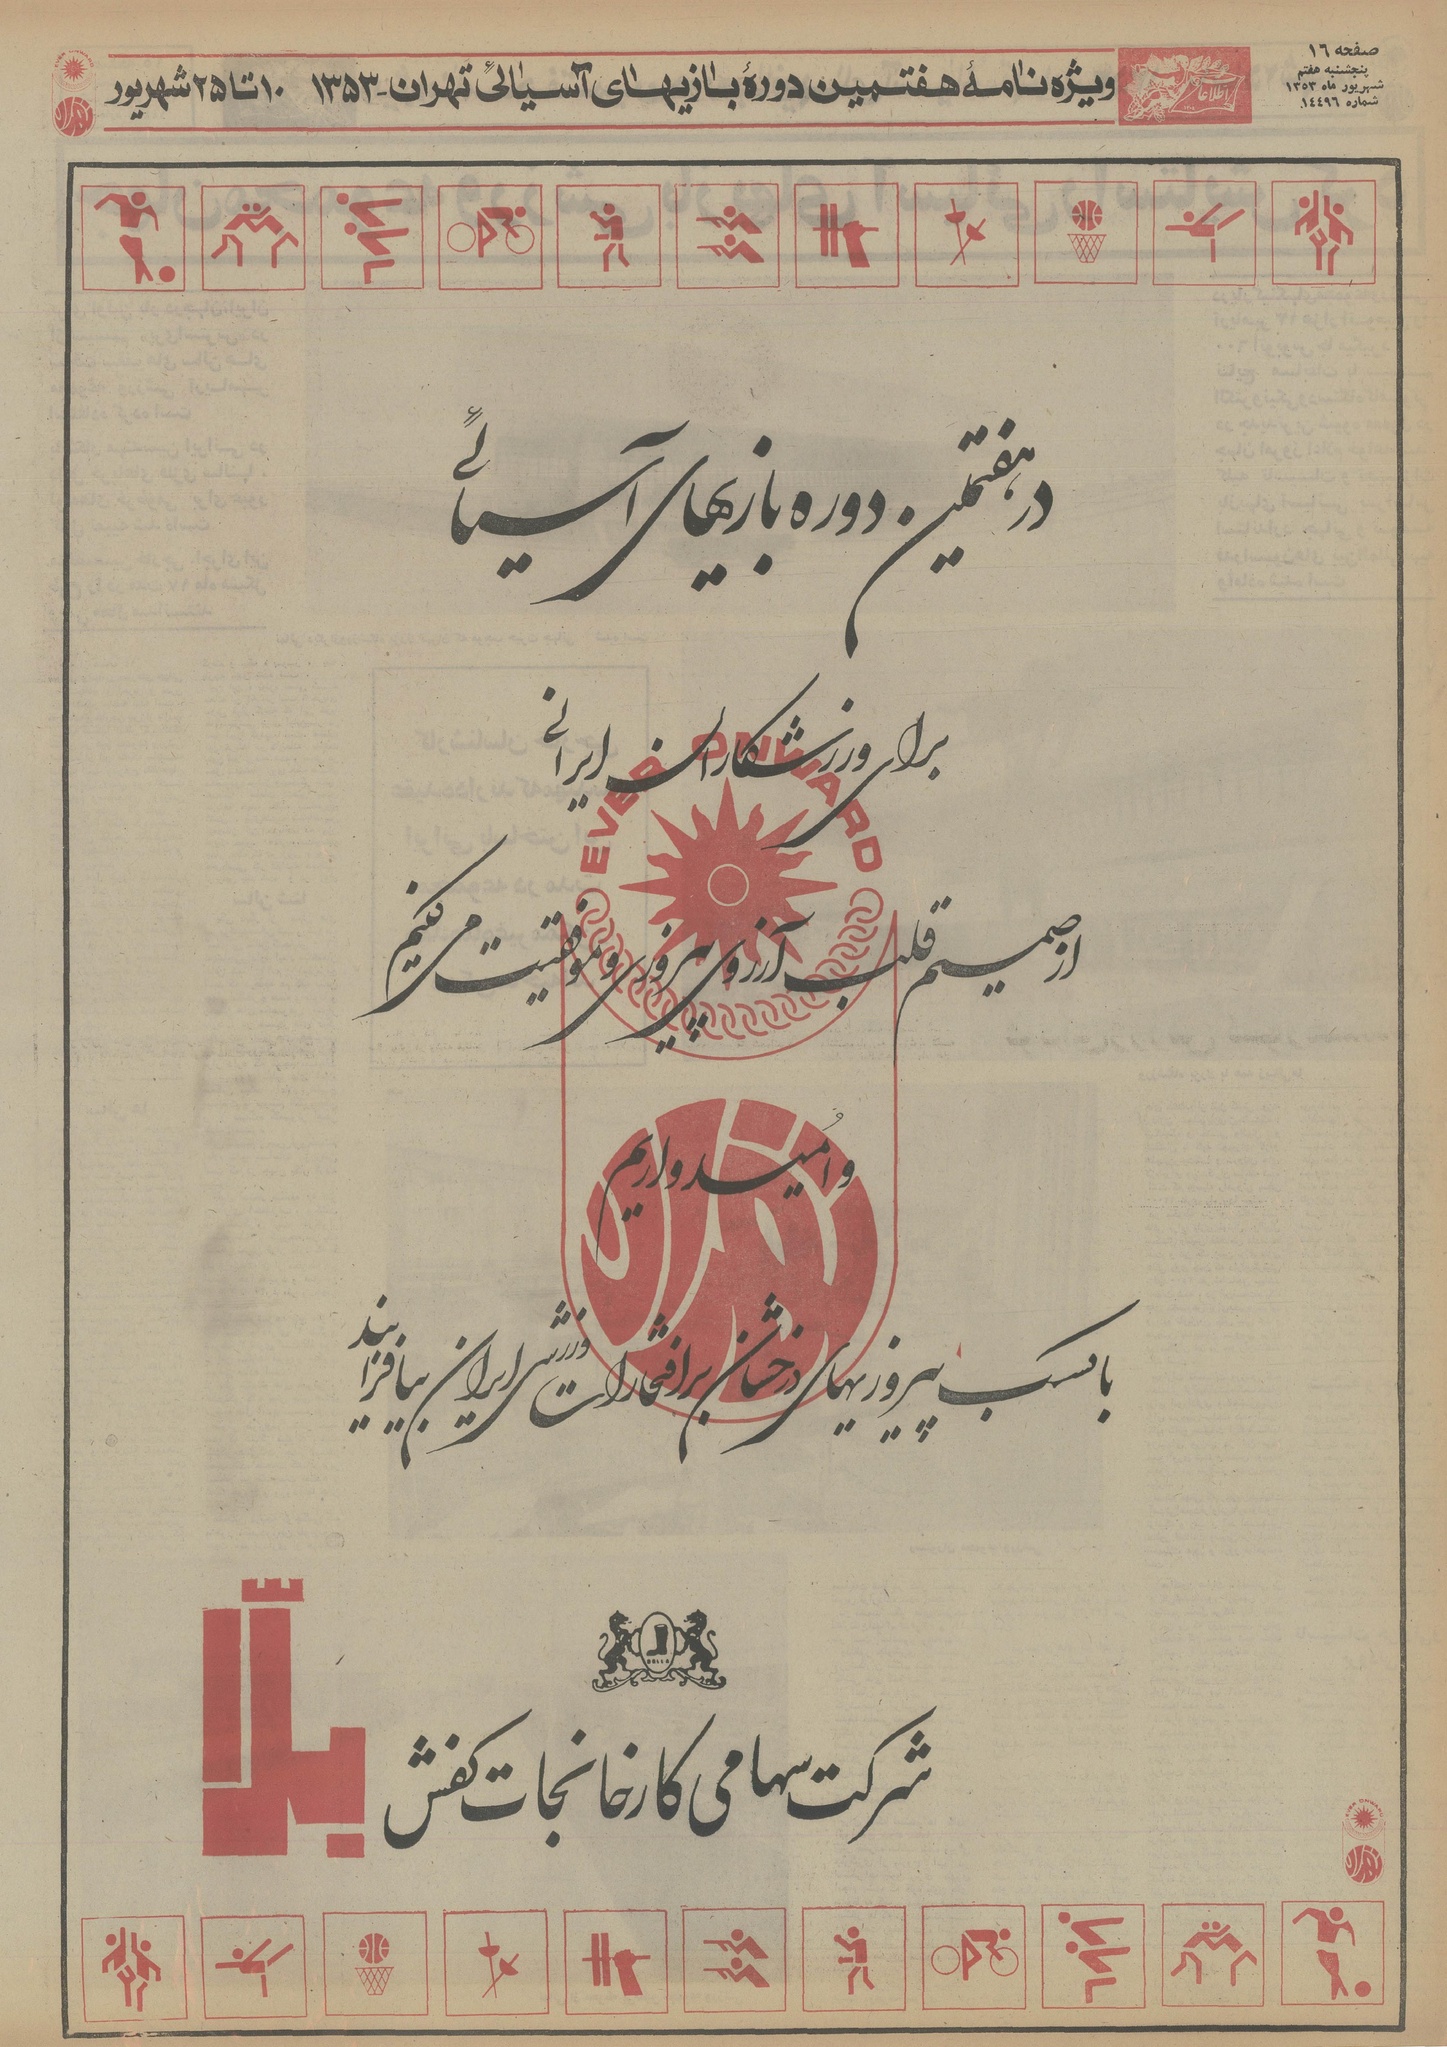 صفحه ۱۶
پنجشنبه هفتم
شهریور ماه ۱۳۵۳
شماره ۱۴۴۹۶
اطلاعات
ویژه‌نامهٔ هفتمین دورهٔ بازیهای آسیائی تهران-۱۳۵۳ ۱۰ تا ۲۵ شهریور
EVER ONWARD
تهران
در هفتمین دوره بازیهای آسیائی
برای ورزشکاران ایرانی
EVER ONWARD
از صمیم قلب آرزوی پیروزی و موفقیت می کنیم
و امیدواریم
تهران
با کسب پیروزیهای درخشان بر افتخارات ورزشی ایران بیافزایند
BALLA
شرکت سهامی کارخانجات کفش
بلّا
EVER ONWARD
تهران